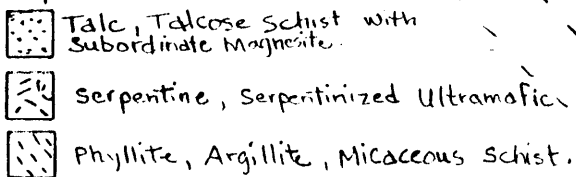 Talc, Talcose Schist with
Subordinate Magnesite.
Serpentine, Serpentinized Ultramafic
Phyllite, Argillite, Micaceous Schist.